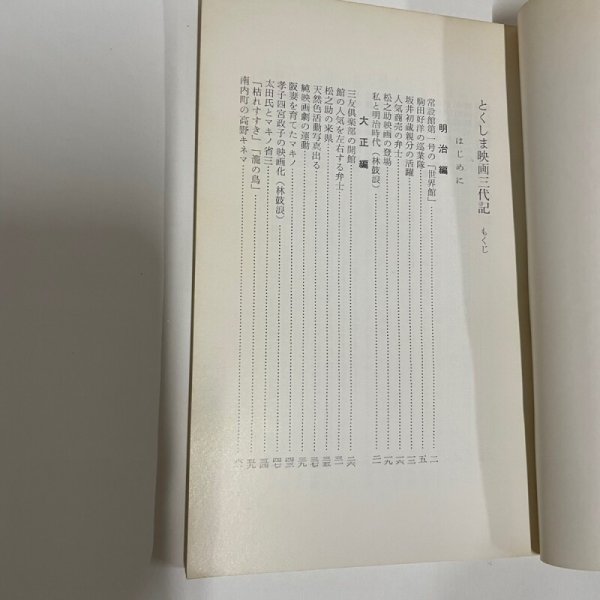 とくしま映画三代記 もくじ
はじめに
明治編
常設館第一号の「世界館」
駒田好洋の巡業隊
坂井初蔵親分の活躍
人気商売の弁士
松之助映画の登場
私と明治時代(林鼓浪)
大正編
三友倶楽部の開館
館の人気を左右する弁士
松之助の来県
天然色活動写真出る
純映画劇の運動
阪妻を育てたマキノ
孝子四宮政子の映画化(林鼓浪)
太田氏とマキノ省三
「枯れすすき」「籠の鳥」
南内町の高野キネマ